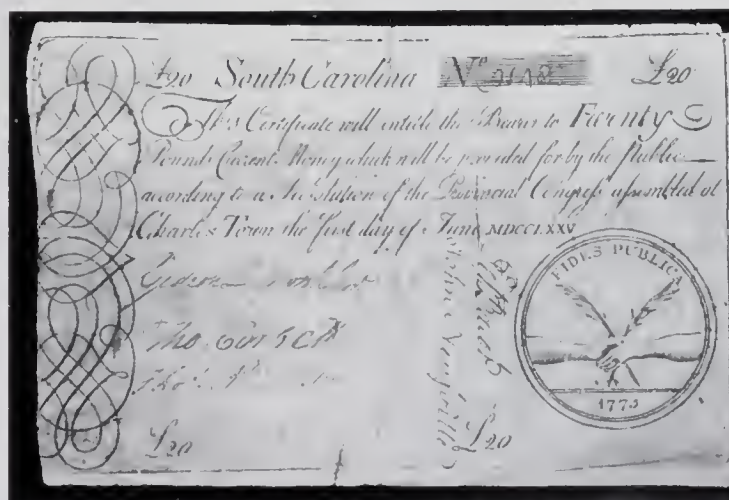 £20 South Carolina No £20
This Certificate will entitle the Bearer to Twenty
Pounds Current Money which will be provided for by the Public
according to a Resolution of the Provincial Congress assembled at
Charles Town the first day of June MDCCLXXV
FIDES PUBLICA
Tho
1775
£20 £20